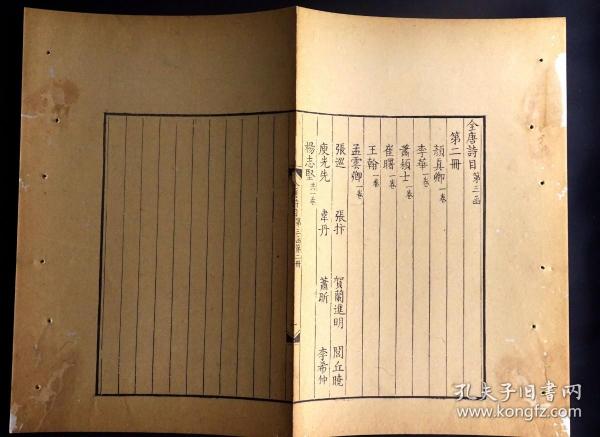 全唐詩目 第三函
第二冊
顏真卿 一卷
李華 一卷
蕭穎士 一卷
崔曙 一卷
王翰 一卷
孟雲卿 一卷
張巡 張抃 賀蘭進明 閭丘曉
庾光先 韋丹 蕭昕 李希仲
楊志堅 共一卷
全唐詩目 第三函第二冊
孔夫子旧书网
www.kongfz.com